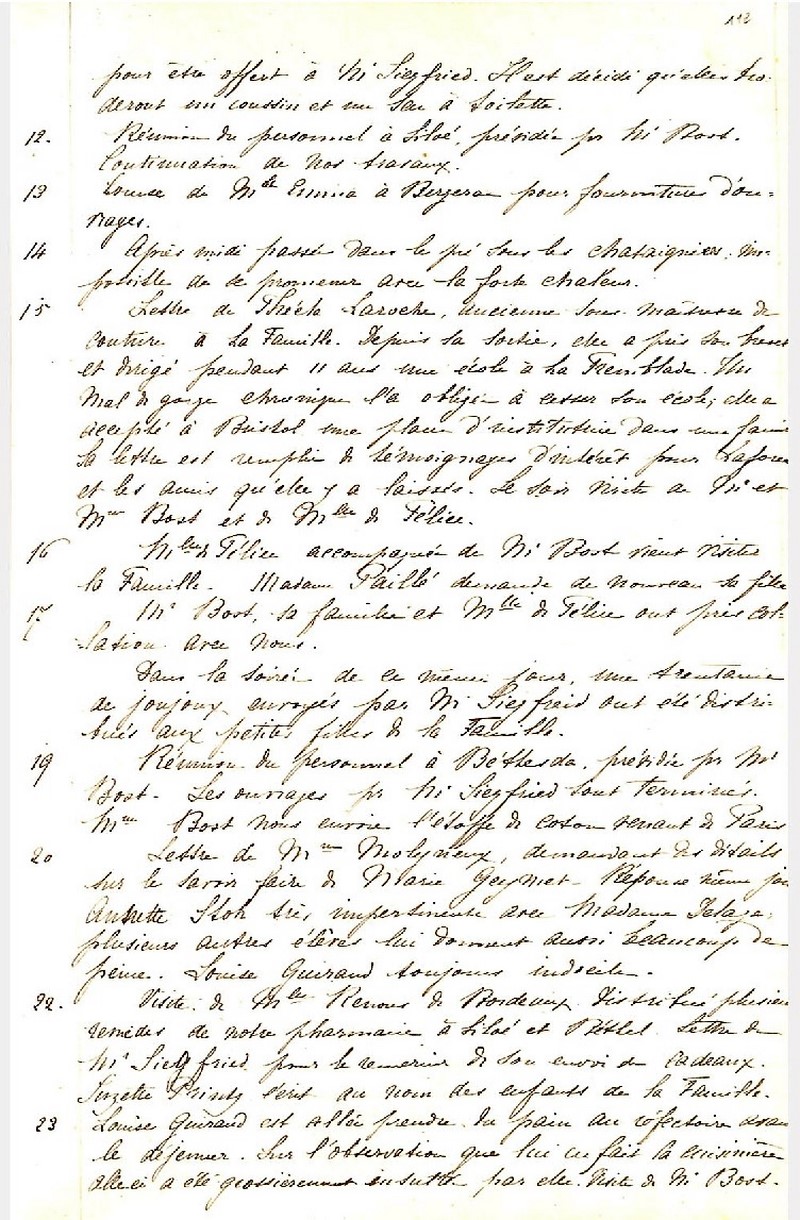 113
pour être offert à Mr Siegfried. Il est décidé qu'elles bro-
deront un coussin et un sac à toilette.
12. Réunion du personnel à Siloé, présidée pr Mr Bost.
Continuation de nos travaux.
13 de Mlle Emma à Bergerac pour fournitures d'ou-
vrages.
14 Après midi passée dans le pré sous les chataigniers; im-
possible de se promener avec la forte chaleur.
15 Lettre de Thécla Laroche, ancienne sous-maîtresse de
couture à La Famille. Depuis sa sortie, elle a pris son brevet
et dirigé pendant 11 ans une école à La Tremblade. Un
mal de gorge chronique l'a obligée à cesser son école; elle a
accepté à Bristol une place d'institutrice dans une famil
Sa lettre est remplie de témoignages d'intérêt pour Laforce
et les amis qu'elle y a laissés. Le soir visite de Mr et
Mme Bost et de Mlle de Félice.
16 Mlle de Félice accompagnée de Mr Bost vient visiter
la Famille. Madame Paillé demande de nouveau sa fille
17 Mr Bost, sa famille et Mlle de Félice ont pris col-
lation avec nous.
Dans la soirée de ce même jour, une trentaine
de joujoux envoyés par Mr Siegfried ont été distri-
bués aux petites filles de la Famille.
19 Réunion du personnel à Béthesda, présidée pr Mr
Bost. Les ouvrages pr Mr Siegfried sont terminés.
Mme Bost nous envoie l'étoffe de coton venant de Paris
20 Lettre de Mme Molyneux, demandant des détails
sur le savoir faire de Marie Geymet. Réponse même jour
Stoh très impertinente avec Madame
plusieurs autres élèves lui donnent aussi beaucoup de
peine. Louise Guiraud toujours indocile.
22. Visite de Mlle Renous de Bordeaux. Distribué plusieu
remèdes de notre pharmacie à Siloé et Béthel. Lettre de
Mr Siegfried pour le remercier de son envoi de cadeaux.
Suzette Printz écrit au nom des enfants de la Famille.
23 Louise Guiraud est allée prendre du pain au réfectoire avan
le déjeuner. Sur l'observation que lui en fait la cuisinière
celle ci a été grossièrement insultée par elle. Visite de Mr Bost.